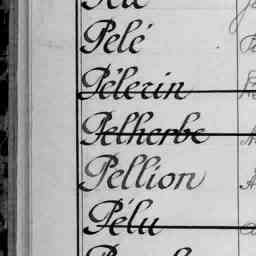 Pelé
Pélerin
Pelherbe
Pellion
Pélu